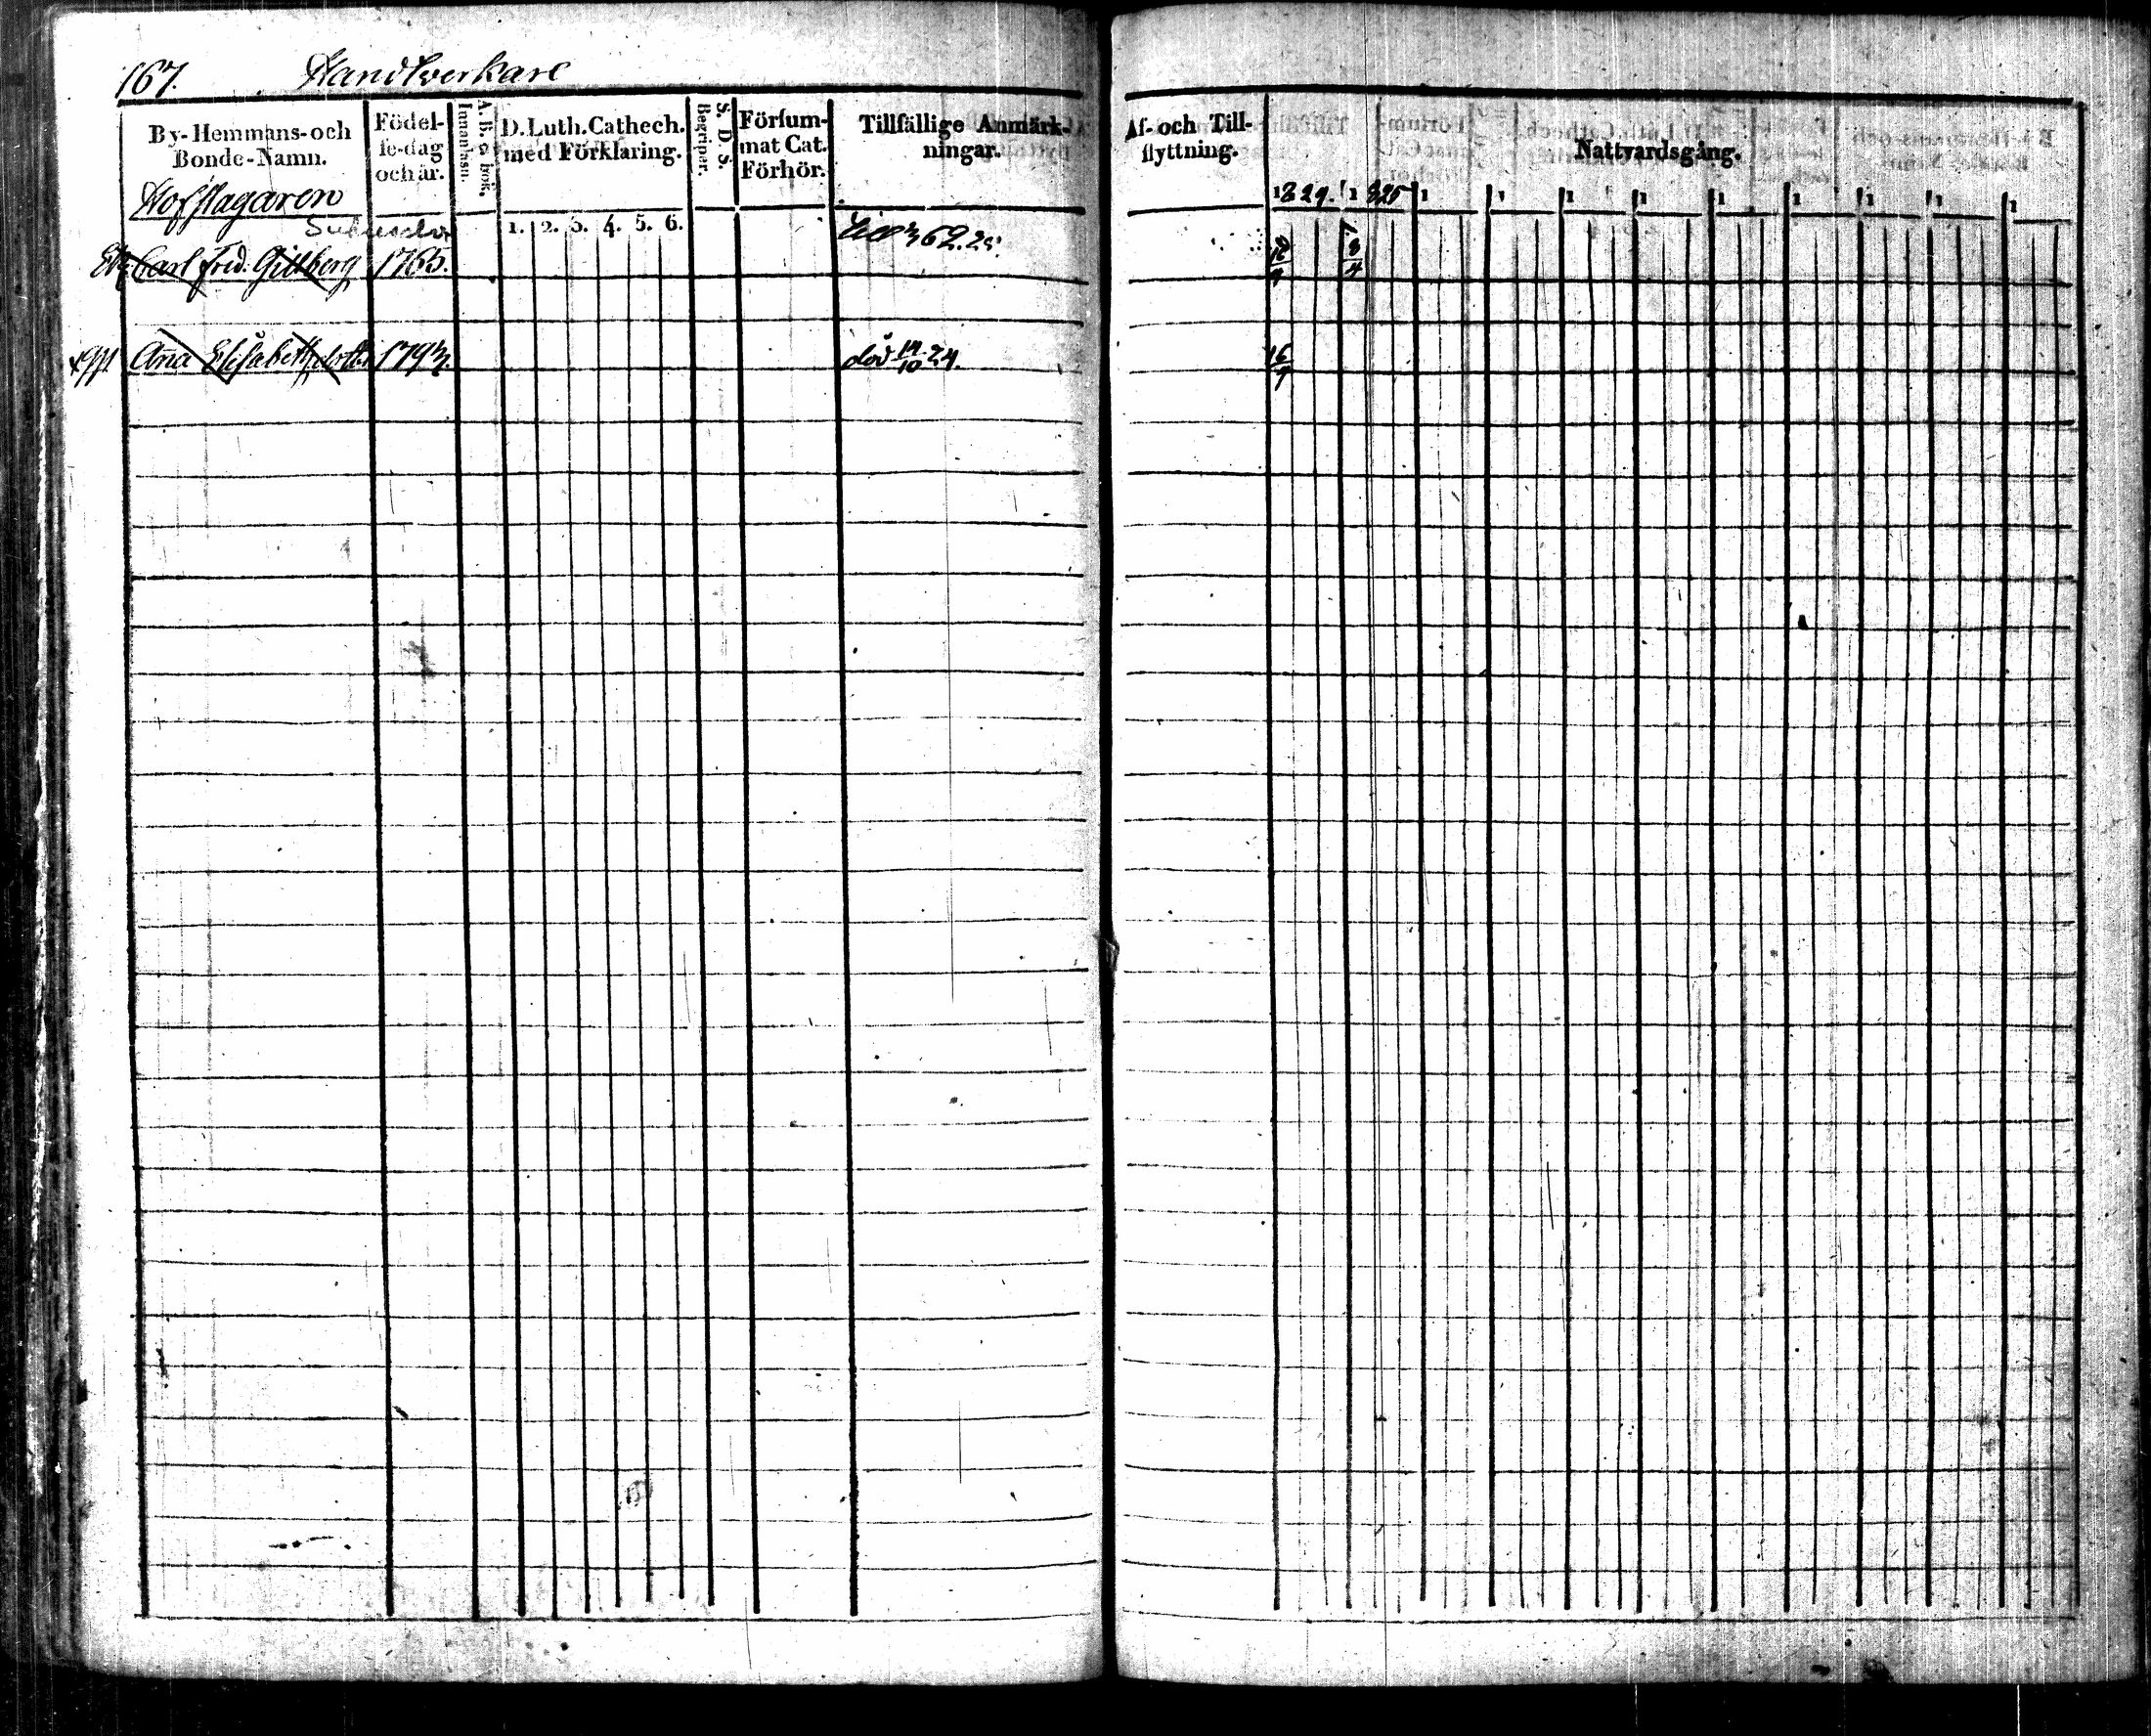 167. Handtverkare
By-Hemmans-och
Bonde-Namn.
Hofslagaren
Födel-
se-dag
och år.
A. B. c. bok.
Innanläsn.
D. Luth. Cathech.
med Förklaring.
1. 2. 3. 4. 5. 6.
S. D. S.
Begriper.
Försum-
mat Cat.
Förhör.
Tillfällige Anmärk-
ningar.
Carl Fred. Gillberg 1765. 62. 25.
Ana Elisabeth 1793. död 14/10 24.
Af- och Till-
flyttning.
Nattvardsgång.
1824. 1825 1 1 1 1 1 1 1 1 1
8/4
16/9